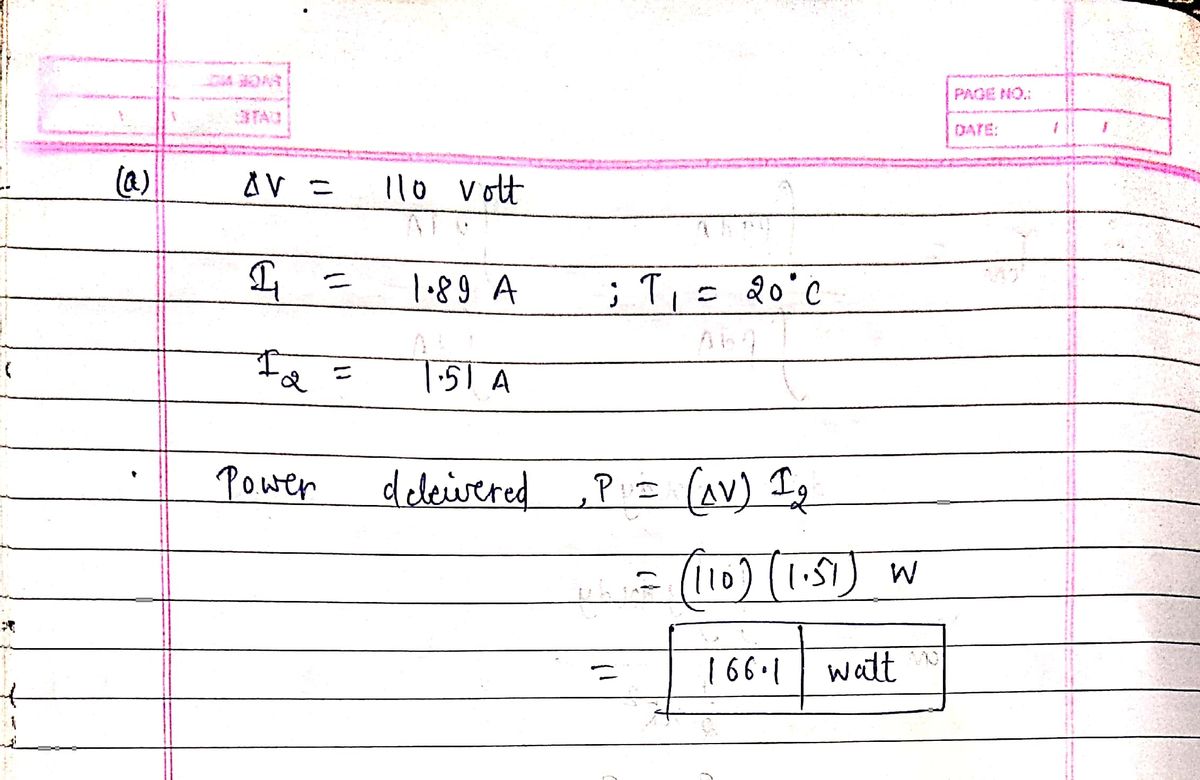 PAGE NO.:
DATE: / /
(a) ΔV = 110 volt
I₁ = 1.89 A ; T₁ = 20°C
I₂ = 1.51 A
Power deleivered , P = (ΔV) I₂
= (110) (1.51) W
= 166.1 watt